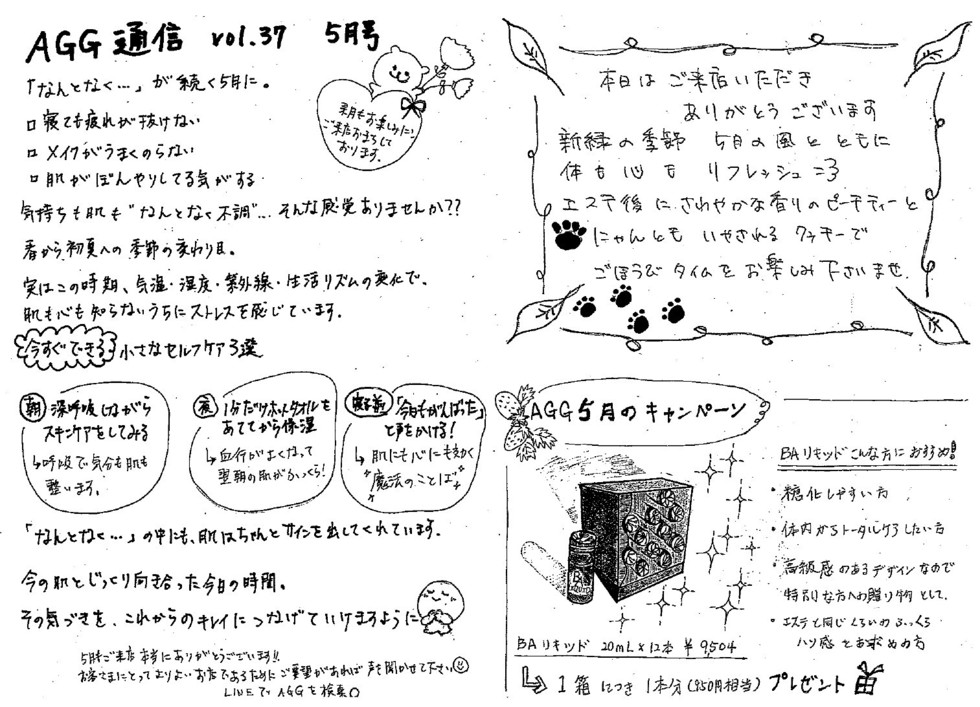 AGG 通信 vol.37 5月号
「なんとなく…」が続く5月に。
□ 寝ても疲れが抜けない
□ メイクがうまくのらない
□ 肌がぼんやりしてる気がする
来月もお楽しみに!
ご来店お待ちして
おります。
気持ちも肌も"なんとなく不調"… そんな感覚ありませんか??
春から初夏への季節の変わり目。
実はこの時期、気温・湿度・紫外線・生活リズムの変化で、
肌も心も知らないうちにストレスを感じています。
今すぐできる 小さなセルフケア3選
朝 深呼吸しながら
スキンケアをしてみる
↳呼吸で気分も肌も
整います。
夜 1分だけホットタオルを
あててから保湿
↳血行がよくなって
翌朝の肌がふっくら!
寝る前 「今日もがんばった」
と声をかける!
↳肌にも心にもきく
魔法のことば
「なんとなく…」の中にも、肌はちゃんとサインを出してくれています。
今の肌とじっくり向き合った今日の時間。
その気づきを、これからのキレイにつなげていけますように
5月もご来店本当にありがとうございます!!
お客さまにとってよりよいお店であるためにご要望があればお声聞かせて下さい
LINEで AGGを検索
本日はご来店いただき
ありがとうございます
新緑の季節 5月の風とともに
体も心も リフレッシュ=3
エステ後に さわやかな香りのピーチティーと
にゃんとも いやされる クッキーで
ごほうびタイムを お楽しみ下さいませ.
AGG5月のキャンペーン
BAリキッド 20mL×12本 ¥9,504
↳ 1箱につき 1本分(950円相当)プレゼント
BAリキッド こんな方に おすすめ!
・糖化しやすい方
・体内からトータルケアしたい方
・高級感のあるデザインなので
特別な方への贈り物として.
・エステと同じくらいのふっくら
ハリ感をお求めの方